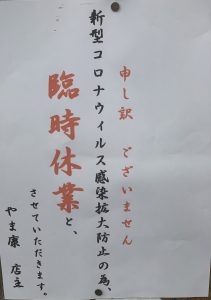 申し訳　ございません
新型コロナウィルス感染拡大防止の為、
臨時休業と、
させていただきます。
やま康　店主